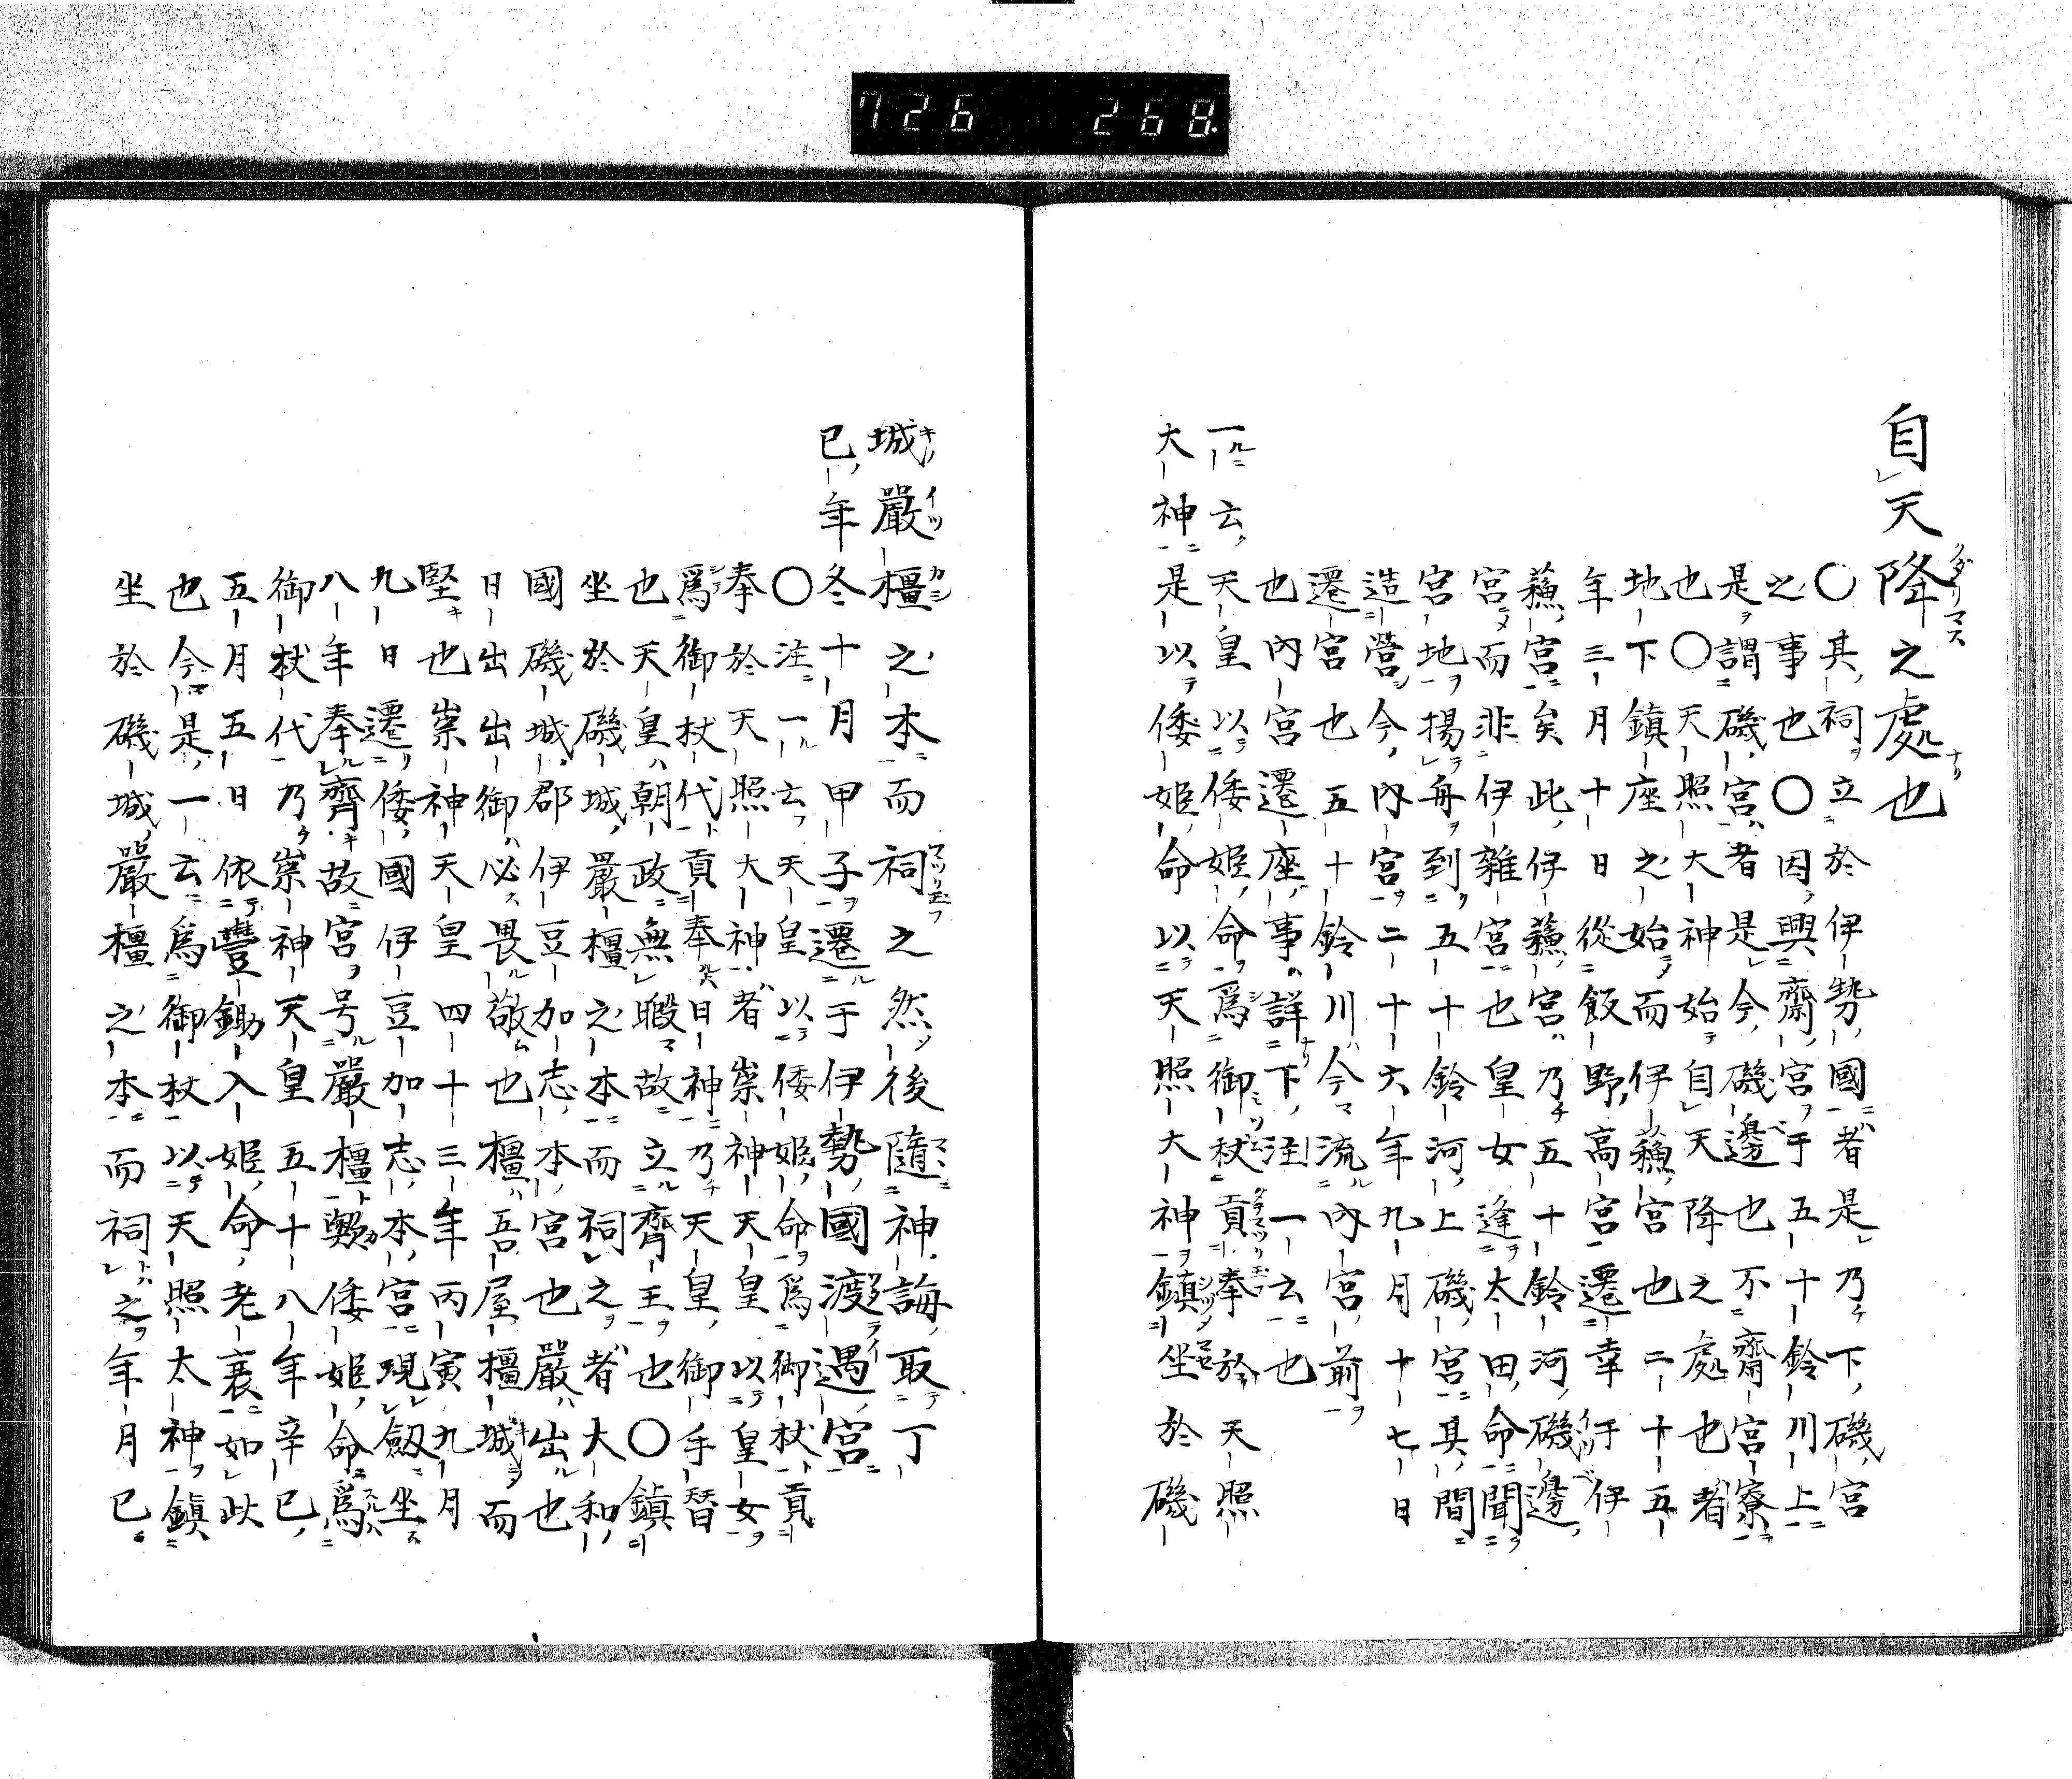 726 268
自天降之處也
〇其祠立於伊勢國者是乃下磯宮
之事也〇因興齋宮于五十鈴川上
是謂磯宮者是今磯邊也不齋宮寮
也〇天照大神始自天降之處也者
地下鎮座之始而伊蘓宮也二十五
年三月十日從飯野高宮遷幸于伊
蘓宮矣此伊蘓宮乃五十鈴河磯邊
宮而非伊雜宮也皇女逢太田命聞
宮地揚舟到五十鈴河上磯宮其間
造營今內宮二十六年九月十七日
遷宮也五十鈴川今流內宮前
也內宮遷座事詳下注一云也
一云天皇以倭姫命爲御杖貢奉於天照
大神是以倭姫命以天照大神鎮坐於磯
城嚴橿之本而祠之然後隨神誨取丁
巳年冬十月甲子遷于伊勢國渡遇宮
〇注一云天皇以倭姫命爲御杖貢
奉於天照大神者崇神天皇以皇女
爲御杖代貢奉日神乃天皇御手替
也天皇朝政無暇故立齊王也〇鎮
坐於磯城嚴橿之本而祠之者大和
國磯城郡伊豆加志本宮也嚴出也
日出出御必畏敬也橿吾屋橿城而
堅也崇神天皇四十三年丙寅九月
九日遷倭國伊豆加志本宮現劔坐
八年奉齊故宮号嚴橿歟倭姫命爲
御杖代乃崇神天皇五十八年辛巳
五月五日依豐鋤入姫命老衰如此
也今是一云爲御杖以天照太神鎮
坐於磯城嚴橿之本而祠之年月已